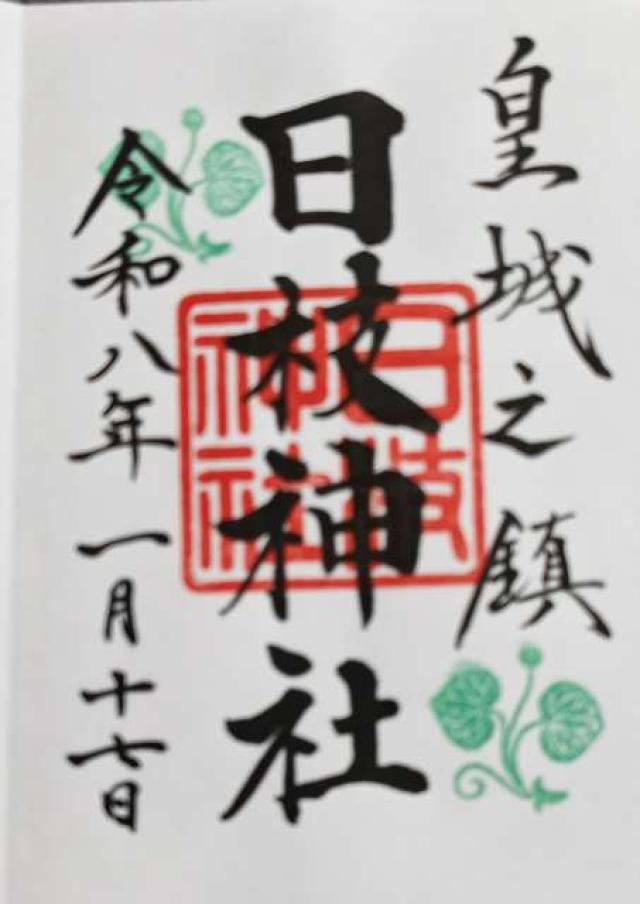 皇城之鎮
日枝神社
日枝神社
令和八年一月十七日